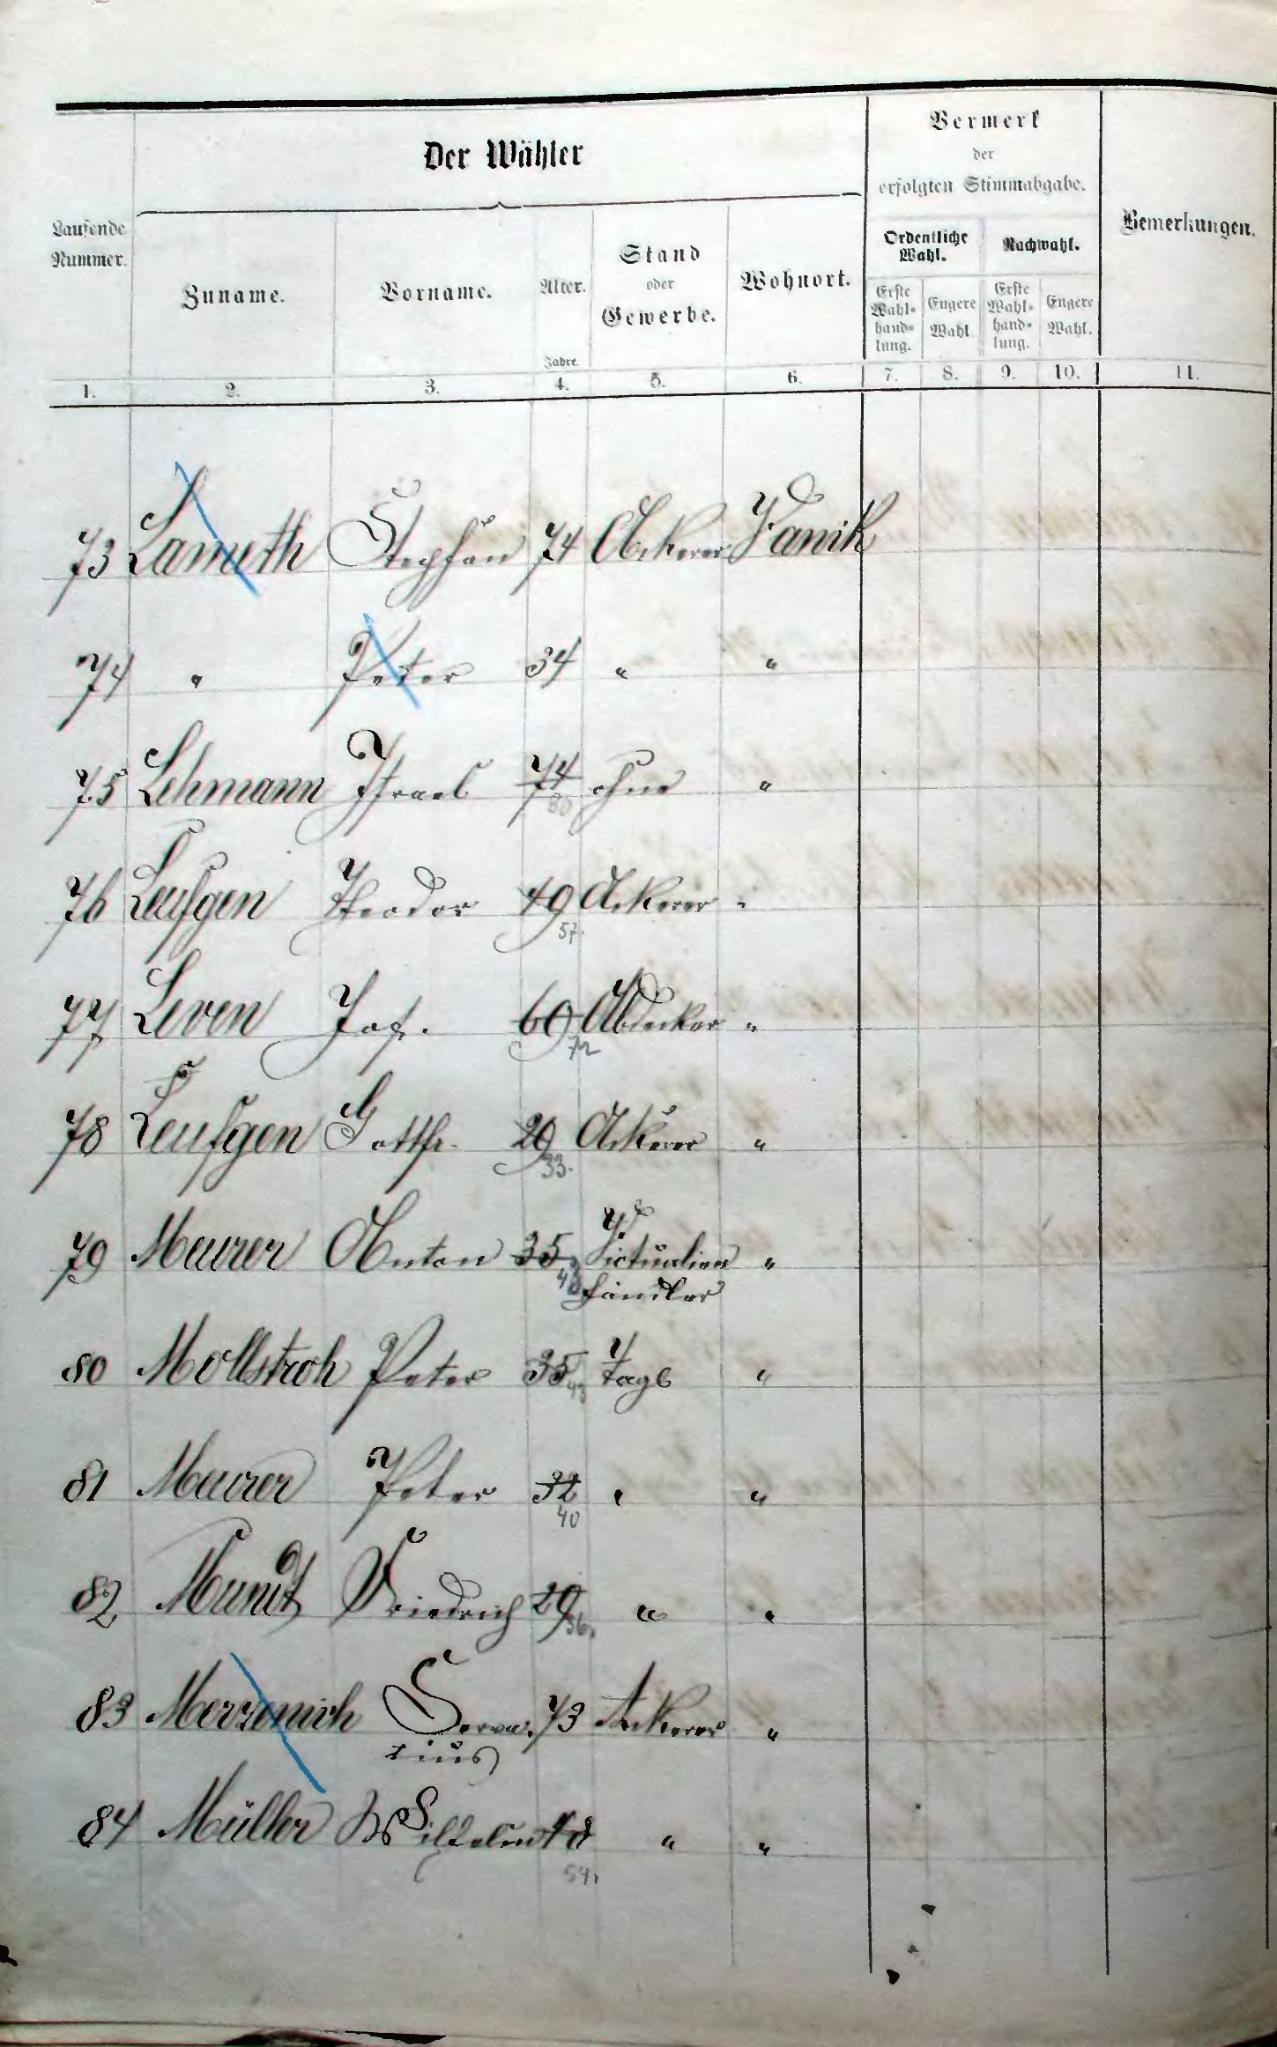 Der Wähler
Vermerk
der
erfolgten Stimmabgabe.
Laufende
Nummer.
Zuname.
Vorname.
Alter.
Jahre.
Stand
oder
Gewerbe.
Wohnort.
Ordentliche
Wahl.
Nachwahl.
Erste
Wahl-
hand-
lung.
Engere
Wahl.
Erste
Wahl-
hand-
lung.
Engere
Wahl.
Bemerkungen.
1. 2. 3. 4. 5. 6. 7. 8. 9. 10. 11.
73 Lameth Stephan 74 Ackerer
74 " Peter 34 " "
75 Lehmann Israel 74 ohne "
80
76 Leufgen Theodor 49 Ackerer "
57
77 Leven Jos. 60 Abdecker "
72
78 Leufgen Gottfr. 29 Ackerer "
33.
79 Maurer Anton 35 Victualien "
43 händler
80 Mollstroh Peter 35 Tagl "
43
81 Maurer Peter 32 " "
40
82 Mundt Friedrich 29 " "
36.
83 Merzenich Serva- 73 Ackerer "
tius
84 Müller Wilhelm "  "
54.